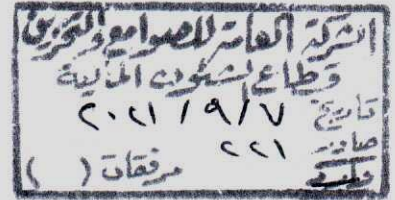 الشركة العامة للصوامع والتخزين
قطاع الشئون المالية
تاريخ ٢٠٢١/٩/٧
صادر ٢٢١
وارد مرفقات ( )